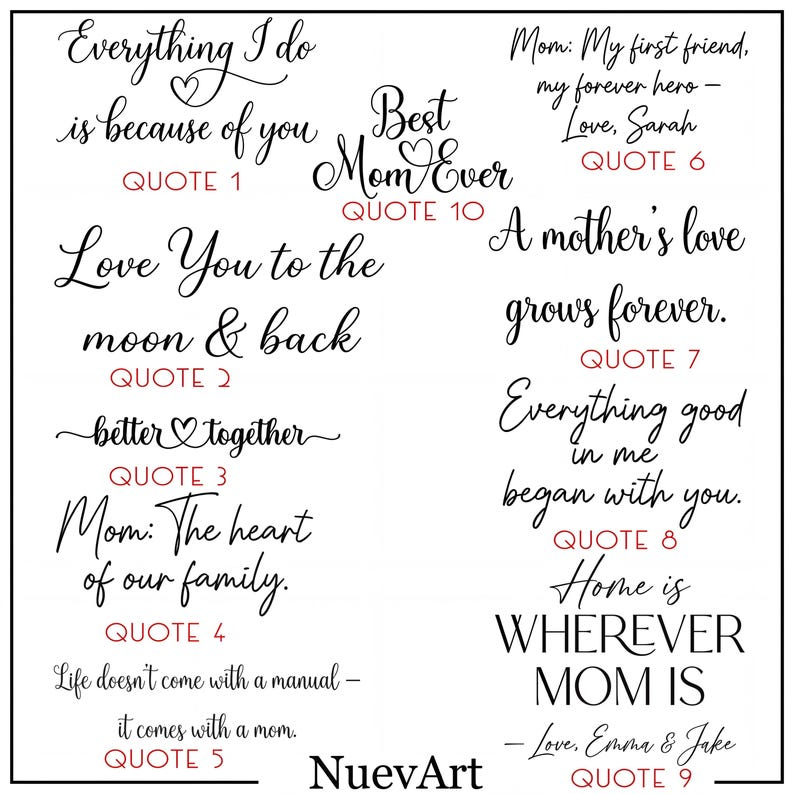 Everything I do
is because of you
QUOTE 1
Love You to the
moon & back
QUOTE 2
better together
QUOTE 3
Mom: The heart
of our family.
QUOTE 4
Life doesn't come with a manual –
it comes with a mom.
QUOTE 5
Best
Mom Ever
QUOTE 10
Mom: My first friend,
my forever hero –
Love, Sarah
QUOTE 6
A mother's love
grows forever.
QUOTE 7
Everything good
in me
began with you.
QUOTE 8
Home is
WHEREVER
MOM IS
– Love, Emma & Jake
QUOTE 9
NuevArt